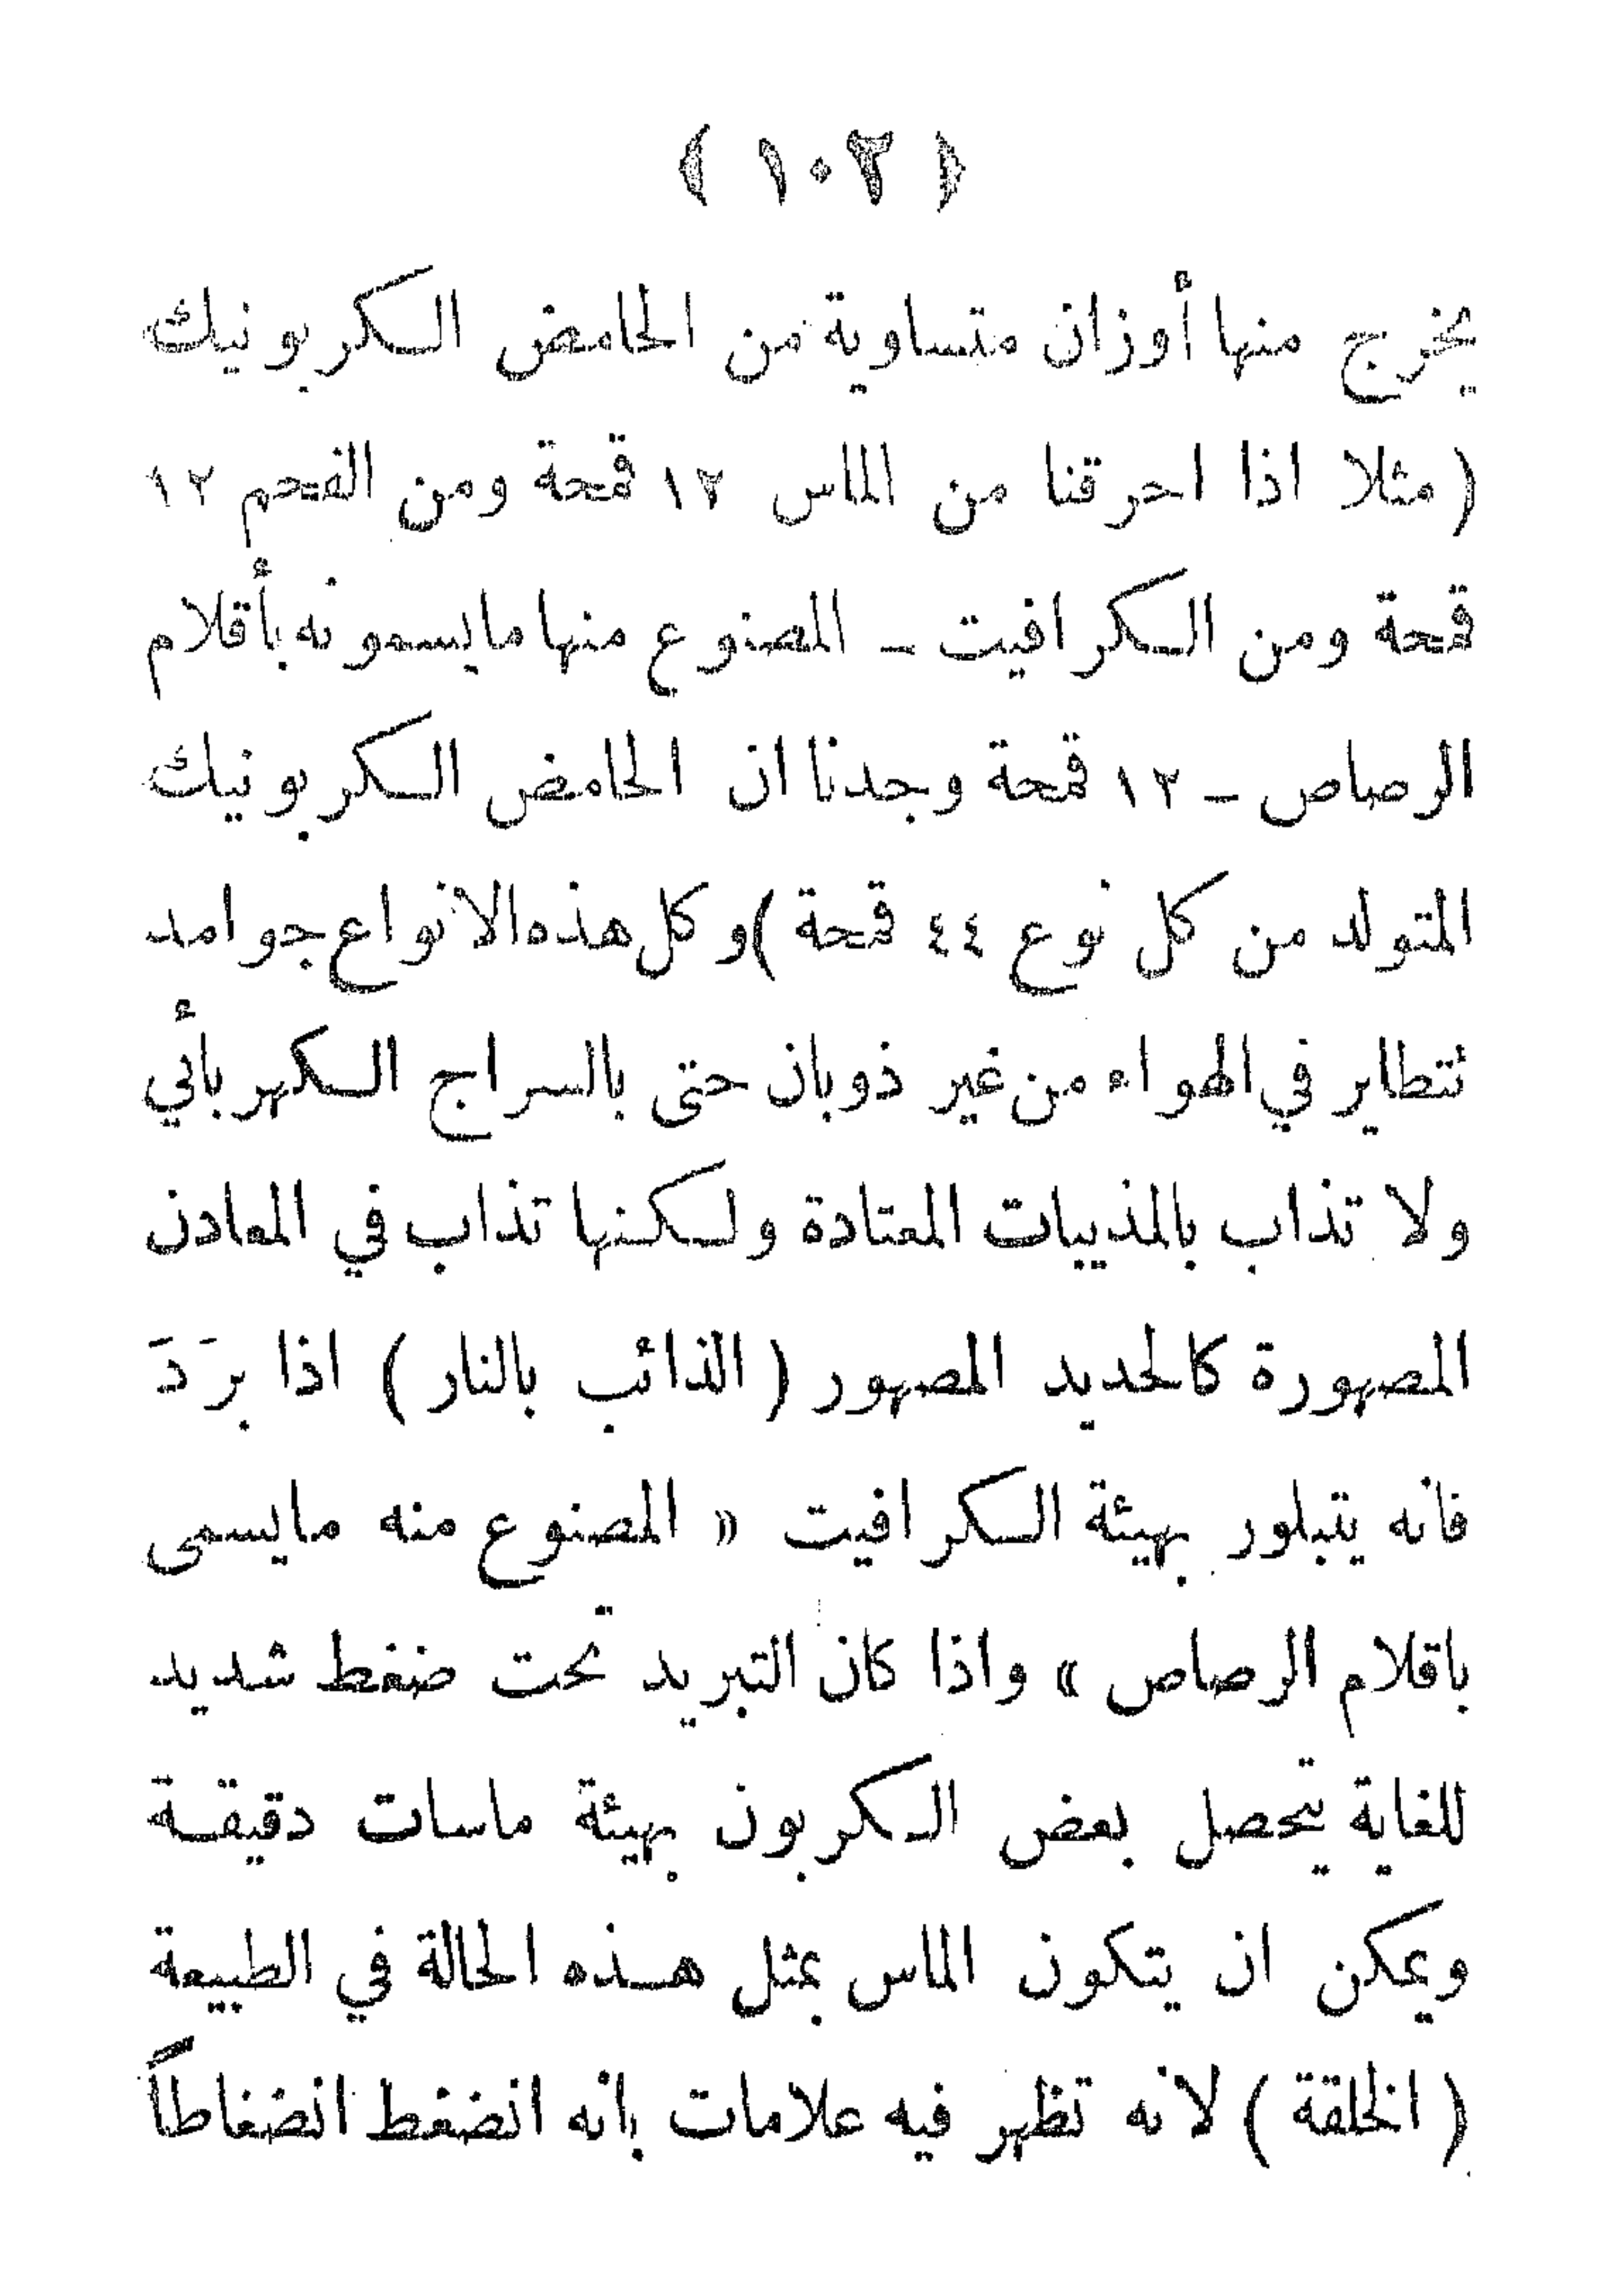 ( ١٠٢ )
يخرج منها أوزان متساوية من الحامض الكربونيك
( مثلا اذا احرقنا من الماس ١٢ قمحة ومن الفحم ١٢
قمحة ومن الكرافيت ــ المصنوع منها مايسمونه بأقلام
الرصاص ــ ١٢ قمحة وجدنا ان الحامض الكربونيك
المتولد من كل نوع ٤٤ قمحة ) وكل هذه الانواع جوامد
تتطاير في الهواء من غير ذوبان حتى بالسراج الكهربأئي
ولا تذاب بالمذيبات المعتادة ولكنها تذاب في المعادن
المصهورة كالحديد المصهور ( الذائب بالنار ) اذا برَدَ
فانه يتبلور بهيئة الكرافيت « المصنوع منه مايسمى
باقلام الرصاص » واذا كان التبريد تحت ضغط شديد
للغاية يتحصل بعض الكربون بهيئة ماسات دقيقة
ويمكن ان يتكون الماس بمثل هذه الحالة في الطبيعة
( الخلقة ) لانه تظهر فيه علامات بانه انضغط انضغاطاً